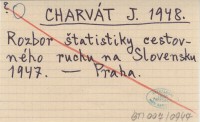 CHARVÁT J. 1948.
Rozbor štatistiky cestov-
ného ruchu na Slovensku
1947. — Praha.